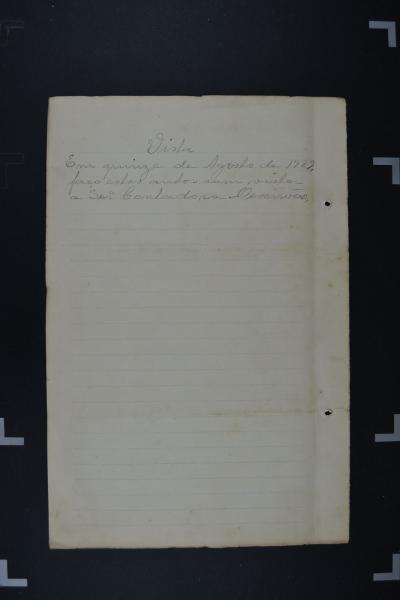 Vista
Em quinze de Agosto de 1922,
faço estes autos com vista
a Snr Contador,